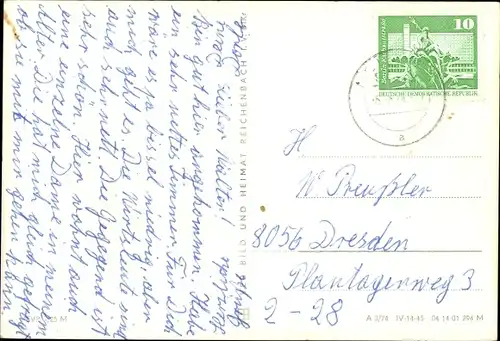 Lieber Walter!
Bin gut hier angekommen. Habe
ein sehr nettes Zimmer. Für Dich
wäre es ja bissel niedrig, aber
mir gefällt es. Die Wirtsleute sind
auch sehr nett. Die Gegend ist
sehr schön. Hier wohnt auch
eine einzelne Dame in meinem
Alter. Die hat mich gleich gefragt
ob sie mit mir gehen kann.
BILD UND HEIMAT REICHENBACH
10
DEUTSCHE DEMOKRATISCHE REPUBLIK
a
H
W Preußler
8056 Dresden
Plantagenweg 3
2-28
A 3/74 IV-14-45 06 14 01 396 M